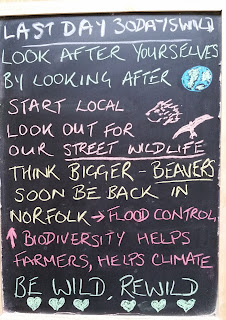 LAST DAY 30DAYSWILD
LOOK AFTER YOURSELVES
BY LOOKING AFTER
START LOCAL
LOOK OUT FOR
OUR STREET WILDLIFE
THINK BIGGER - BEAVERS
SOON BE BACK IN
NORFOLK → FLOOD CONTROL
↑ BIODIVERSITY HELPS
FARMERS, HELPS CLIMATE
BE WILD, REWILD